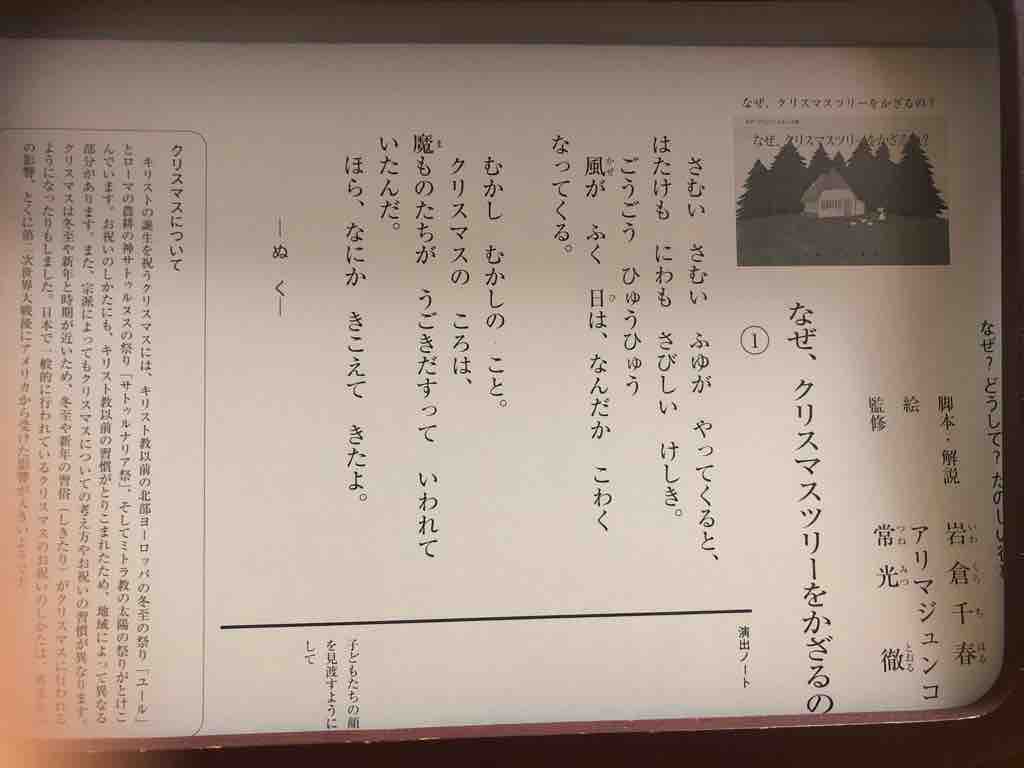 なぜ？どうして？たのしい行
脚本・解説　岩倉千春
いわ　くら　ち　はる
絵　アリマジュンコ
監修　常光　徹
つね　みつ　とおる
なぜ、クリスマスツリーをかざるの？
なぜ、クリスマスツリーをかざるの？
なぜ、クリスマスツリーをかざるの
①
さむい　さむい　ふゆが　やってくると、
はたけも　にわも　さびしい　けしき。
ごうごう　ひゅうひゅう
風が　ふく　日は、なんだか　こわく
かぜ　ひ
なってくる。
むかし　むかしの　こと。
クリスマスの　ころは、
魔ものたちが　うごきだすって　いわれて
ま
いたんだ。
ほら、なにか　きこえて　きたよ。
―ぬ　く―
演出ノート
子どもたちの顔
を見渡すように
して
クリスマスについて
キリストの誕生を祝うクリスマスには、キリスト教以前の北部ヨーロッパの冬至の祭り「ユール」
とローマの農耕の神サトゥルヌスの祭り「サトゥルナリア祭」、そしてミトラ教の太陽の祭りがとけこ
んでいます。お祝いのしかたにも、キリスト教以前の習慣がとりこまれたため、地域によって異なる
部分があります。また、宗派によってもクリスマスについての考え方やお祝いの習慣が異なります。
クリスマスは冬至や新年と時期が近いため、冬至や新年の習俗（しきたり）がクリスマスに行われる
ようになったりもしました。日本で一般的に行われているクリスマスのお祝いのしかたは、
の影響、とくに第二次世界大戦後にアメリカから受けた影響が大きい